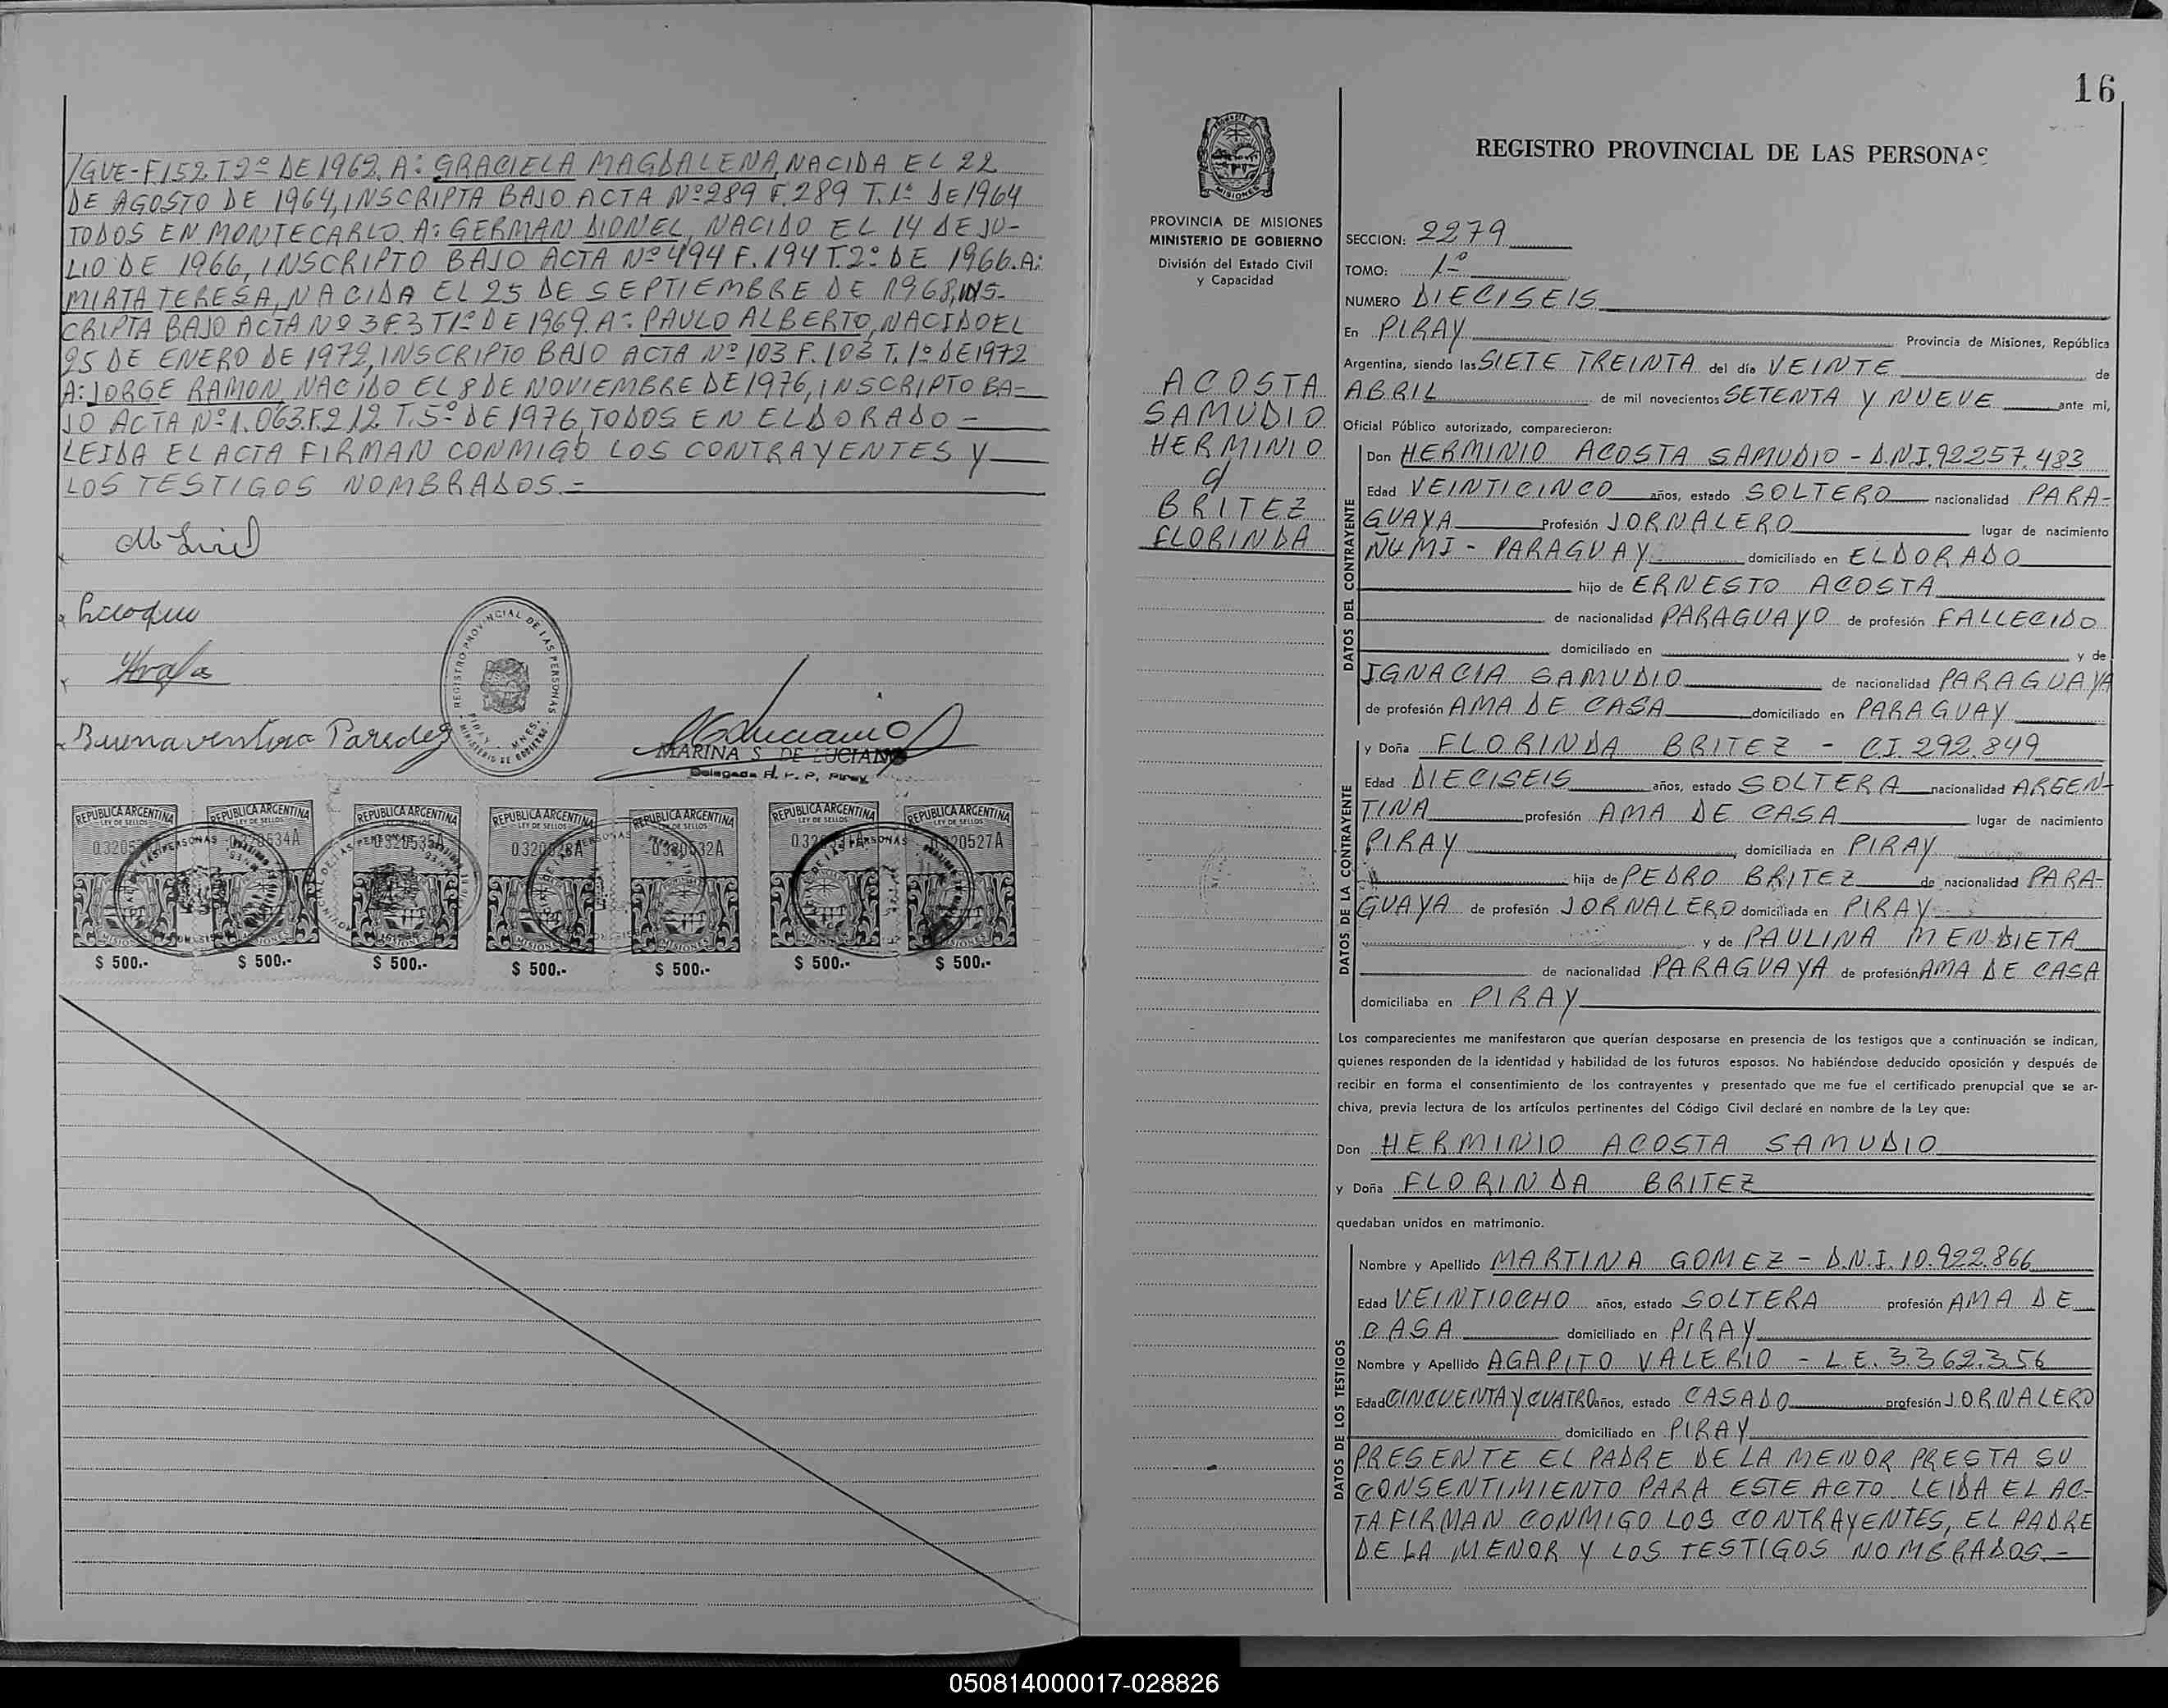 /GUE-F152.T.2º DE 1962. A: GRACIELA MAGDALENA, NACIDA EL 22
DE AGOSTO DE 1964, INSCRIPTA BAJO ACTA Nº 289 F. 289 T. 1º DE 1964
TODOS EN MONTECARLO. A: GERMAN DIONEL, NACIDO EL 14 DE JU-
LIO DE 1966, INSCRIPTO BAJO ACTA Nº 494 F. 194 T. 2º DE 1966. A:
MIRTA TERESA, NACIDA EL 25 DE SEPTIEMBRE DE 1968, INS-
CRIPTA BAJO ACTA Nº 3 F. 3 T 1º DE 1969. A: PAULO ALBERTO, NACIDO EL
25 DE ENERO DE 1972, INSCRIPTO BAJO ACTA Nº 103 F. 103 T. 1º DE 1972
A: JORGE RAMON, NACIDO EL 8 DE NOVIEMBRE DE 1976, INSCRIPTO BA-
JO ACTA Nº 1.063 F. 212 T. 5º DE 1976, TODOS EN ELDORADO -
LEIDA EL ACTA FIRMAN CONMIGO LOS CONTRAYENTES Y
LOS TESTIGOS NOMBRADOS. =
Buenaventura Paredes
REGISTRO PROVINCIAL DE LAS PERSONAS
PIRAY - MNES.
MINISTERIO DE GOBIERNO
MARINA S. DE LUCIANO
Delegada R. P. P. Piray
REPUBLICA ARGENTINA REPUBLICA ARGENTINA REPUBLICA ARGENTINA REPUBLICA ARGENTINA REPUBLICA ARGENTINA REPUBLICA ARGENTINA REPUBLICA ARGENTINA
LEY DE SELLOS LEY DE SELLOS LEY DE SELLOS LEY DE SELLOS LEY DE SELLOS LEY DE SELLOS LEY DE SELLOS
MISIONES MISIONES MISIONES MISIONES MISIONES MISIONES MISIONES
$ 500.- $ 500.- $ 500.- $ 500.- $ 500.- $ 500.- $ 500.-
16
MISIONES
PROVINCIA DE MISIONES
MINISTERIO DE GOBIERNO
División del Estado Civil
y Capacidad
ACOSTA
SAMUDIO
HERMINIO
c/
BRITEZ
FLORINDA
REGISTRO PROVINCIAL DE LAS PERSONAS
SECCION: 2279
TOMO: 1º
NUMERO DIECISEIS
En PIRAY Provincia de Misiones, República
Argentina, siendo las SIETE TREINTA del día VEINTE de
ABRIL de mil novecientos SETENTA Y NUEVE ante mi,
Oficial Público autorizado, comparecieron:
DATOS DEL CONTRAYENTE
Don HERMINIO ACOSTA SAMUDIO - D.N.I. 92257.483
Edad VEINTICINCO años, estado SOLTERO nacionalidad PARA-
GUAYA Profesión JORNALERO lugar de nacimiento
ÑUMI - PARAGUAY domiciliado en ELDORADO
hijo de ERNESTO ACOSTA
de nacionalidad PARAGUAYO de profesión FALLECIDO
domiciliado en y de
IGNACIA SAMUDIO de nacionalidad PARAGUAYA
de profesión AMA DE CASA domiciliado en PARAGUAY
DATOS DE LA CONTRAYENTE
y Doña FLORINDA BRITEZ - C.I. 292.849
Edad DIECISEIS años, estado SOLTERA nacionalidad ARGEN-
TINA profesión AMA DE CASA lugar de nacimiento
PIRAY domiciliada en PIRAY
hija de PEDRO BRITEZ de nacionalidad PARA-
GUAYA de profesión JORNALERO domiciliada en PIRAY
y de PAULINA MENDIETA
de nacionalidad PARAGUAYA de profesión AMA DE CASA
domiciliaba en PIRAY
Los comparecientes me manifestaron que querían desposarse en presencia de los testigos que a continuación se indican,
quienes responden de la identidad y habilidad de los futuros esposos. No habiéndose deducido oposición y después de
recibir en forma el consentimiento de los contrayentes y presentado que me fue el certificado prenupcial que se ar-
chiva, previa lectura de los artículos pertinentes del Código Civil declaré en nombre de la Ley que:
Don HERMINIO ACOSTA SAMUDIO
y Doña FLORINDA BRITEZ
quedaban unidos en matrimonio.
DATOS DE LOS TESTIGOS
Nombre y Apellido MARTINA GOMEZ - D.N.I. 10.922.866
Edad VEINTIOCHO años, estado SOLTERA profesión AMA DE
CASA domiciliado en PIRAY
Nombre y Apellido AGAPITO VALERIO - L.E. 3.362.356
Edad CINCUENTA Y CUATRO años, estado CASADO profesión JORNALERO
domiciliado en PIRAY
PRESENTE EL PADRE DE LA MENOR PRESTA SU
CONSENTIMIENTO PARA ESTE ACTO. LEIDA EL AC-
TA FIRMAN CONMIGO LOS CONTRAYENTES, EL PADRE
DE LA MENOR Y LOS TESTIGOS NOMBRADOS. =
050814000017-028826